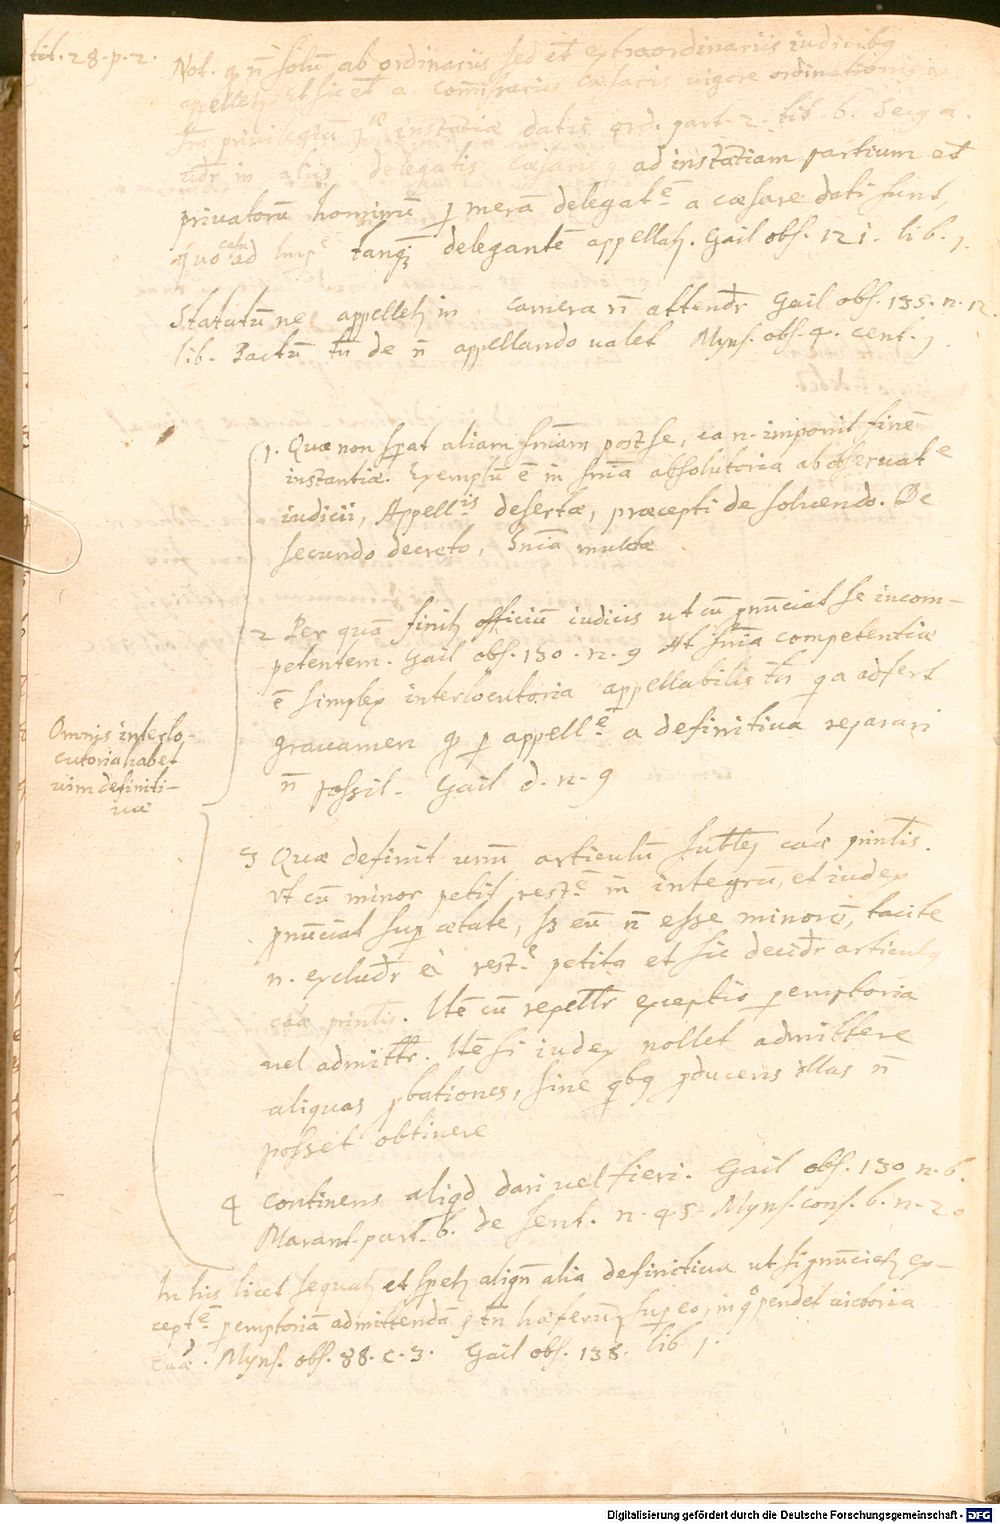 tit. 28. p. 2.
Not. qd n̄ solū ab ordinariis sed et̄ extraordinariis iudicibq
appellet᷒ et sic et̄ a com̄issariis cæsaris uigore ordinationis
privilegiū instātiæ datis ord. part. 2. tit. 6.
in aliis delegatis Cæsaris ad instātiam partium et̄
privatorū hominū p merā delegatē a cæsare dati sunt,
quo casu ad tanq̄ delegantē appellat᷒. Gail obs. 121. lib. 1.
Statutū ne appellet᷒ in camera n̄ attendr̄ Gail obs. 135. n. 12.
lib. Pactū tn̄ de n̄ appellando ualet Myns. obs. 4. cent. 1.
1. Quæ non spāt aliam sn̄iam post se, ea n. imponit finē
instantiæ. Exemplū ē in sn̄ia absolutoria ab obseruatē
iudicii, Appellis desertæ, præcepti de soluendo. De
secundo decreto, Sn̄ia multæ
2 Per quā finit᷒ officiū iudicis ut cū pnūciat se incom-
petentem. Gail obs. 130. n. 9 At sn̄ia competentiæ
ē simplex interlocutoria appellabilis tn̄ qa adfert
grauamen qd p appellē a definitiua reparari
n̄ possit. Gail d. n. 9
Omnis interlo-
cutoria habet
uim definiti-
uæ
3 Quæ definit unū articulū caæ prinlis.
Vt cū minor petit restē in integrū, et iudex
pnūciat sup ætate, s₃ eū n̄ esse minorē, tacite
n. excludr̄ ei restē petita et sic decidr̄ articulq
caæ prinlis. Itē cū repellr̄ exceptio peremptoria
uel admittr̄. Itē si iudex nollet admittere
aliquas pbationes, sine qbq pducens illas n̄
posset obtinere
4 Continens aliqd dari uel fieri. Gail obs. 130 n. 6.
Marant. part. 6. de sent. n. 45 Myns. cons. 6. n. 20
In his licet sequat᷒ et spet᷒ aliqn̄ alia definitiua ut si pnūciet᷒ ex-
ceptē peremptoriā admittendā tn̄ sup eo, in qo pendet uictoria
caæ. Myns. obs. 88. c. 3. Gail obs. 138. lib 1.
Digitalisierung gefördert durch die Deutsche Forschungsgemeinschaft - DFG